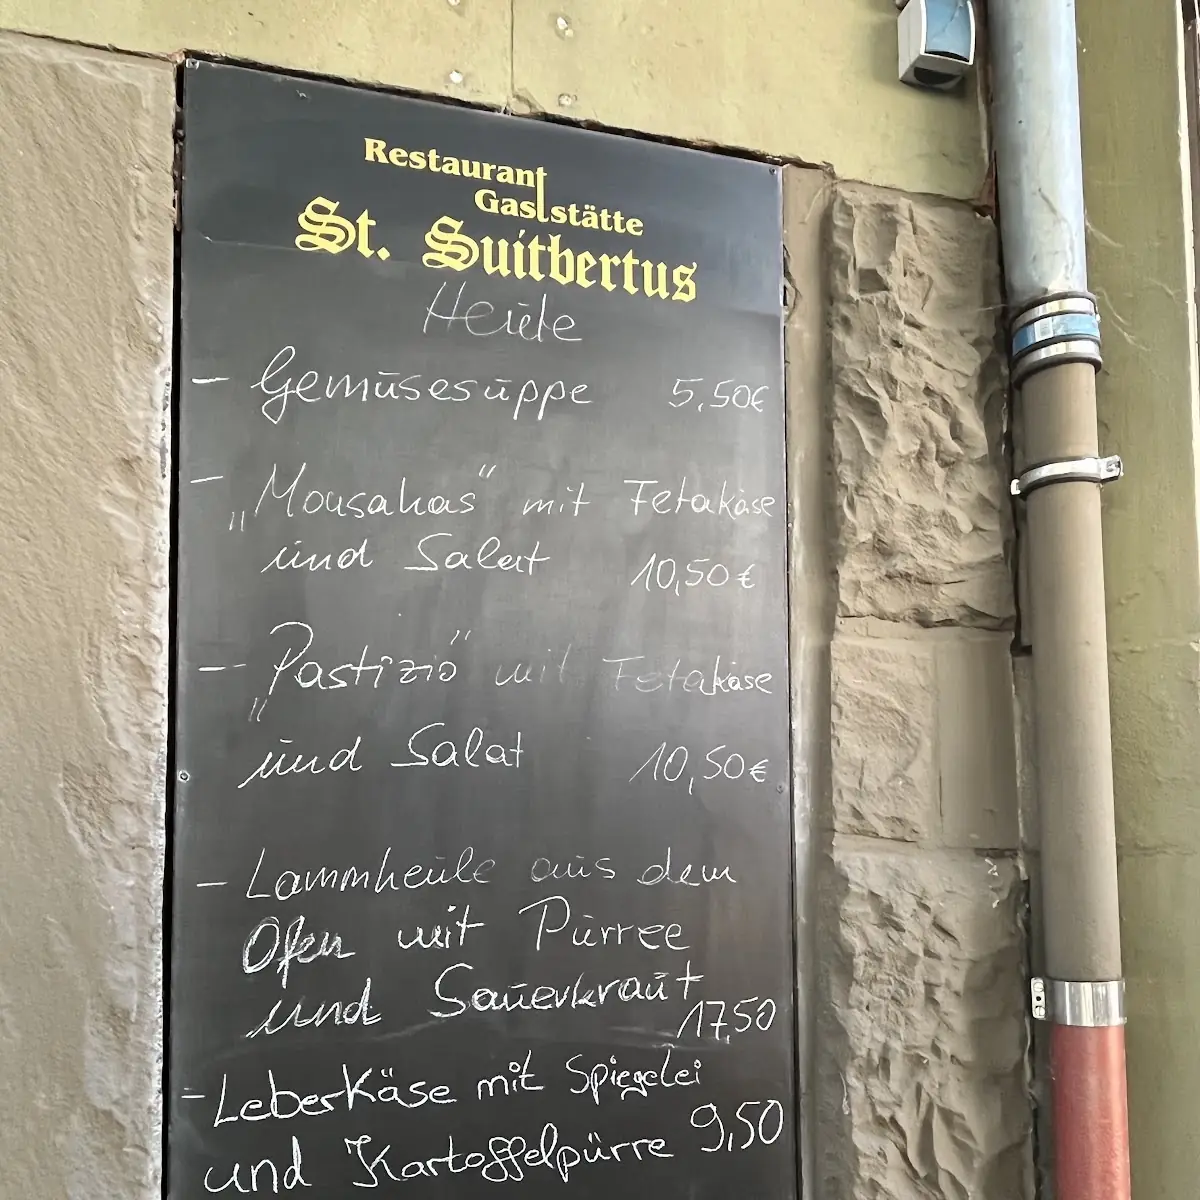 Restaurant
Gaststätte
St. Suitbertus
Heute
- Gemüsesuppe 5,50€
- „Mousakas“ mit Fetakäse
und Salat 10,50€
- „Pastizio“ mit Fetakäse
und Salat 10,50€
- Lammkeule aus dem
Ofen mit Pürree
und Sauerkraut
17,50
- Leberkäse mit Spiegelei
und Kartoffelpürre 9,50